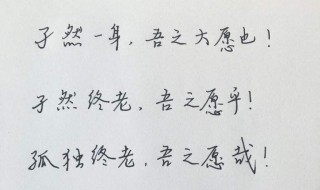 孑然一身，吾之大愿也！
孑然终老，吾之愿乎！
孤独终老，吾之愿哉！